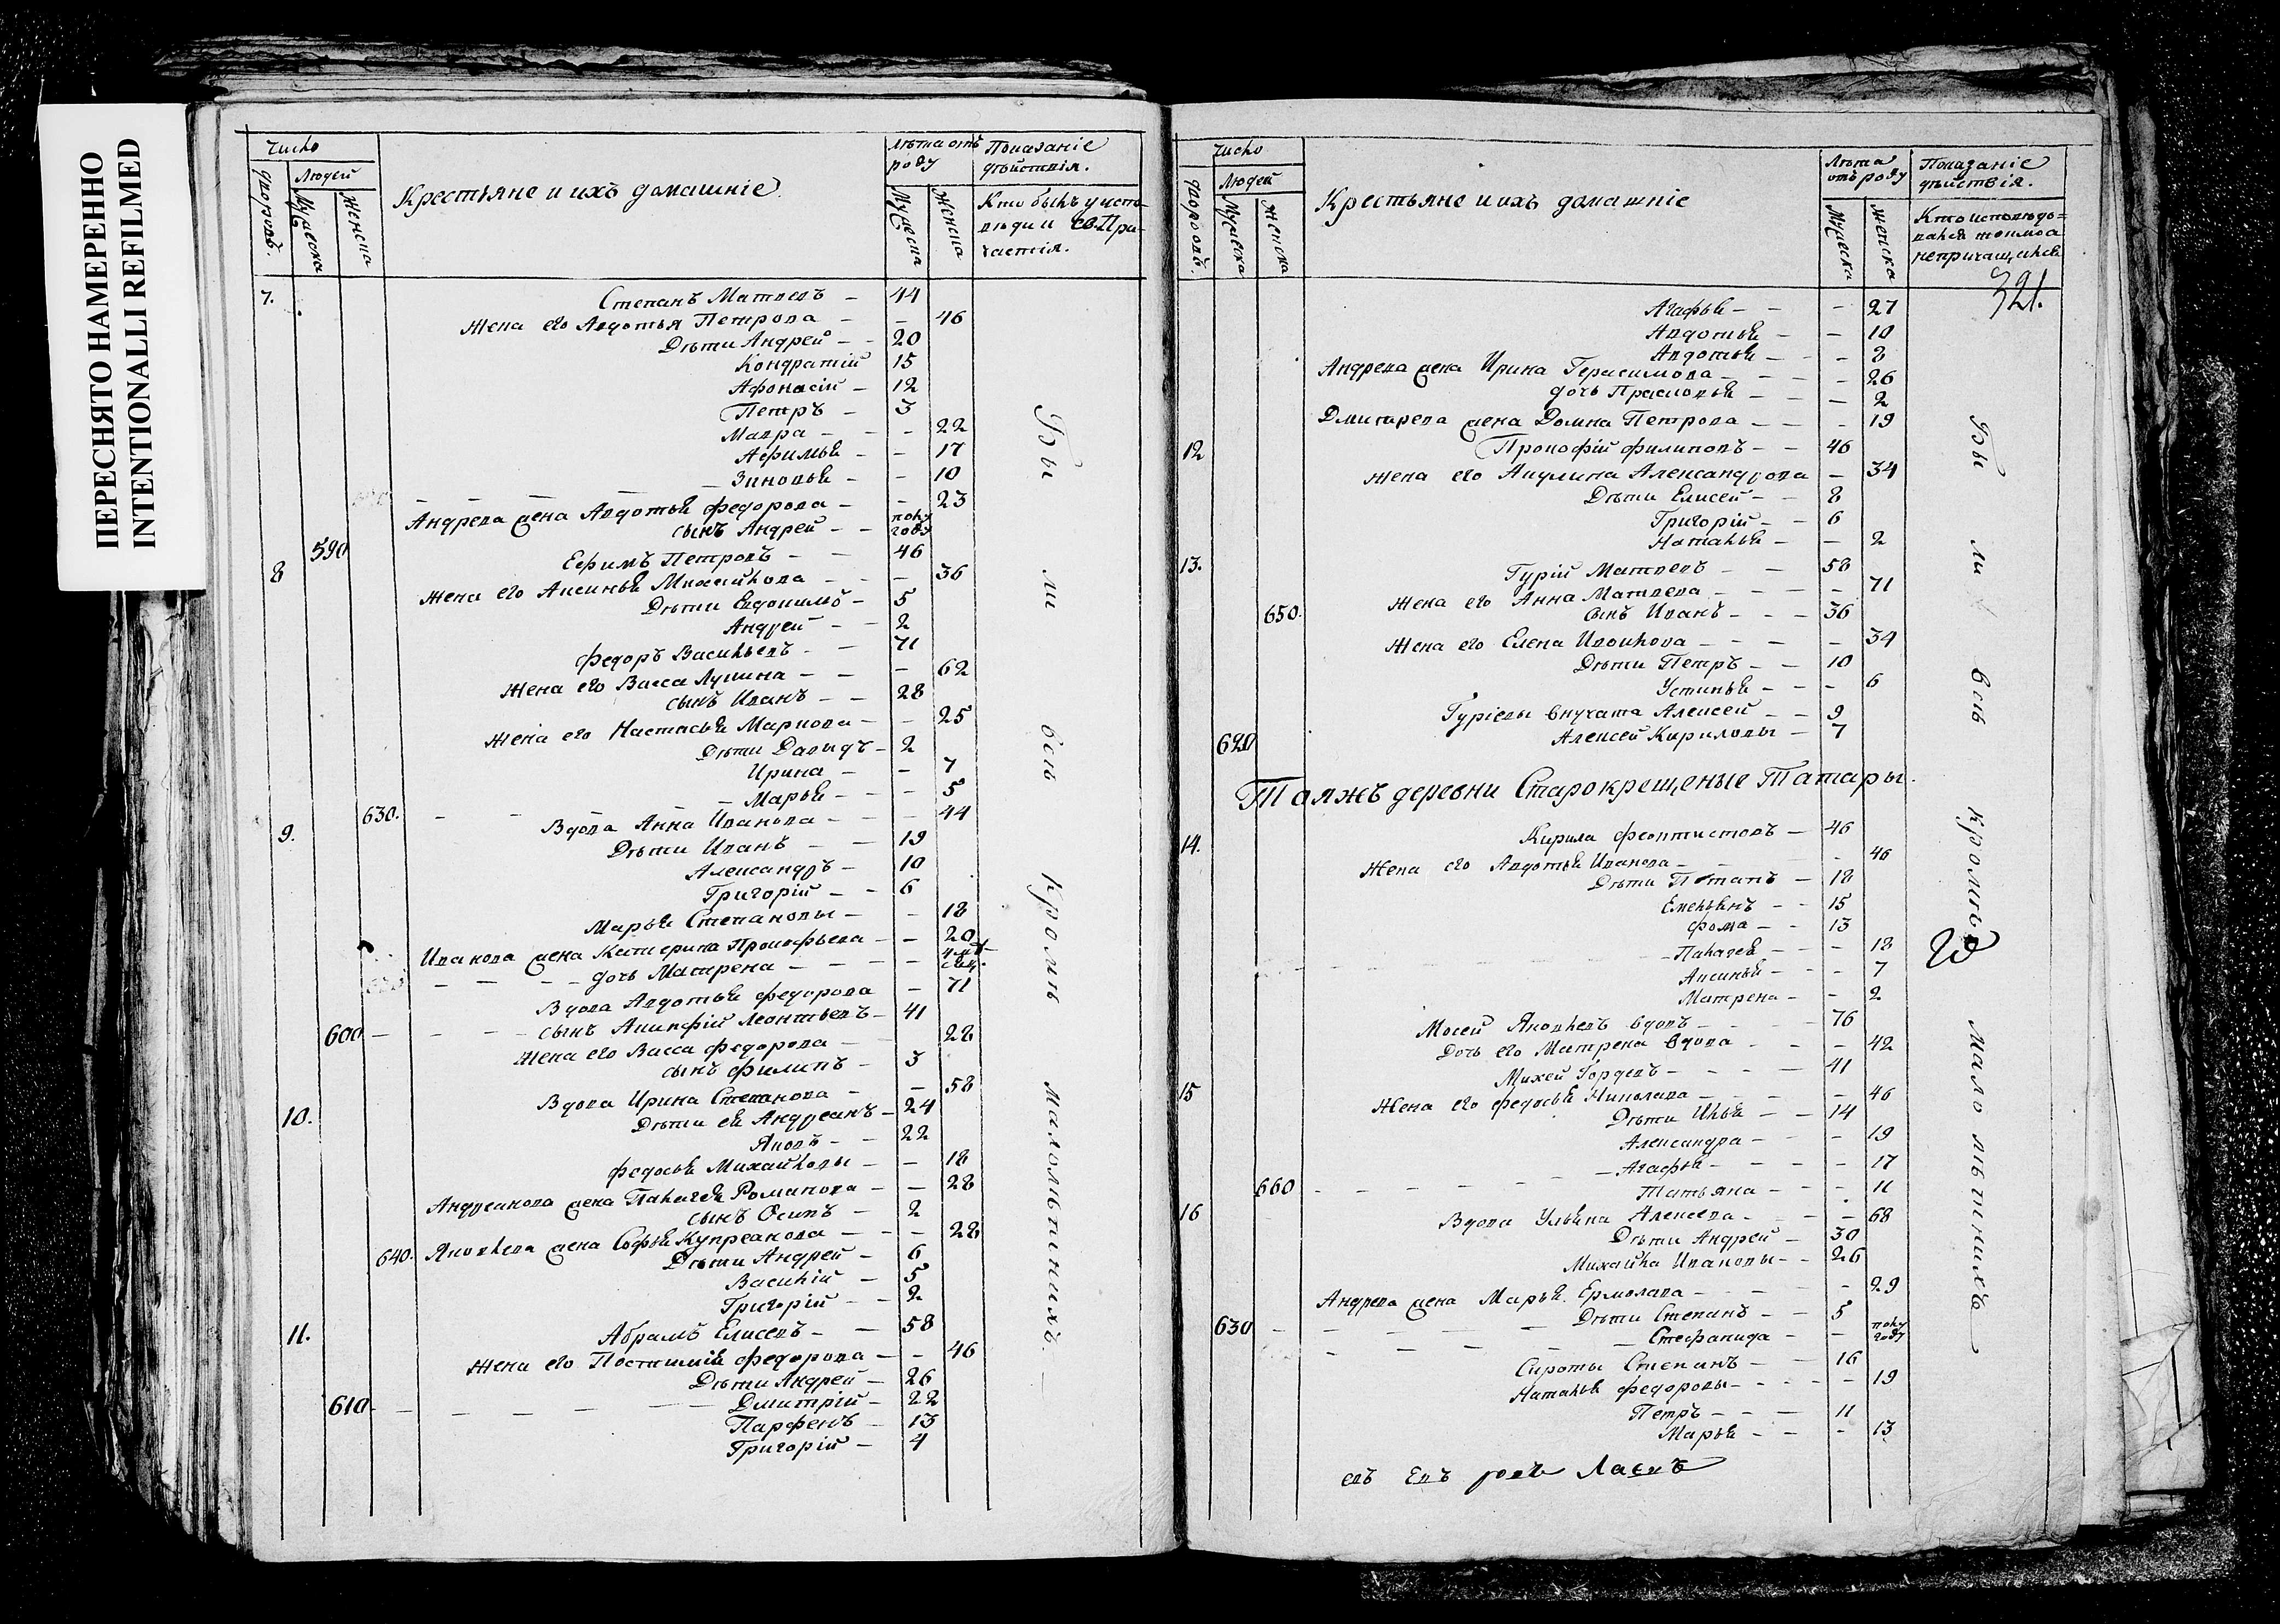 ПЕРЕСНЯТО НАМЕРЕННО
INTENTIONALLI REFILMED
Число
дворовъ.
Людей
Мужеска
Женска
Крестьяне и ихъ домашніе
Лѣта отъ роду
Мужеска
Женска
Показаніе
дѣйствія.
Кто былъ у испо-
вѣди и Св. При-
частія.
7. Степанъ Матвевъ – 44
Жена его Авдотья Петрова – – 46
Дѣти Андрей – – 20
Кондратій 15
Афонасій – 12
Петръ – 3
Мавра – – – 22
Афимья – – 17
Зиновья – – 10
Андреева жена Авдотья Федорова – – 23
590 сынъ Андрей – – полу году
8 Ефимъ Петровъ – – 46
Жена его Аксинья Михайлова – – – 36
Дѣти Евдокимъ – 5
Андрей – – 2
Федоръ Васильевъ – – 71
Жена его Васса Лукина – – – 62
сынъ Иванъ – – 28
Жена его Настасья Маркова – – 25
Дѣти Давыдъ – 2
Ирина – – 7
Марья – – – 5
630. 9. Вдова Анна Иванова – – – 44
Дѣти Иванъ – – 19
Александръ – 10
Григорій – – 6
Марья Степановы – – 18
Иванова жена Катерина Прокофьева – – 20
дочь Матрена – – – – 4 мѣсяц.
Вдова Авдотья Федорова – 71
600 – – – – сынъ Акинфій Леонтьевъ – 41
Жена его Васса Федорова – – 28
сынъ Филипъ – 3
10. Вдова Ирина Степанова – – 58
Дѣти ея Андреанъ – 24
Яковъ – – 22
Федосья Михайловы – – 18
Андреанова жена Палагея Романова – – 28
сынъ Осипъ – 2
640. Яковлева жена Софья Купреанова – – – 28
Дѣти Андрей – 6
Василій – 5
Григорій – – 2
11. Абрамъ Елисевъ – – 58
Жена его Федорова – – 46
Дѣти Андрей – 26
610 – – – – – – Дмитрій – 22
Парфенъ – 13
Григорій – 4
Бы ли всѣ кромѣ малолѣтнихъ. –
Число
дворовъ.
Людей
Мужеска
Женска
Крестьяне и ихъ домашніе
Лѣта
отъ роду
Мужеска
Женска
Показаніе
дѣйствія.
Кто исповѣдо=
вался токмо а
непричащался
321.
Агафья – – – 27
Авдотья – – 10
Авдотья – – – 2
Андреева жена Ирина Герасимова – – – – 26
дочь Прасковья – – – 2
Дмитрева жена Домна Петрова – – – 19
12 Прокофій Филиповъ – – 46
Жена его Акулина Александрова – 34
Дѣти Елисей – – 8
Григорій – – 6
Наталья – – 2
13. Гурій Матвевъ – – 58
Жена его Анна Матвева – – – – 71
650. сынъ Иванъ – – – 36
Жена его Елена – – – – 34
Дѣти Петръ – – 10
Устинья – – – 6
Гуріевы внучата Алексей – – 9
620 Алексей Кириловы – 7
Тояжъ деревни Старокрещеные Татары.
14. Кирила Феоктистовъ – 46
Жена его Авдотья Иванова – – – 46
Дѣти Потапъ – 18
Емельянъ – – 15
Фома – – 13
Палагея – – – 18
Аксинья – – – 7
Матрена – – 2
Мосей Яковлевъ вдовъ – – – – 76
Дочь его Матрена вдова – – – 42
15 Михей Гордевъ – – – – 41
Жена его Федосья Николава – – – – 46
Дѣти Илья – – 14
Александра – – – 19
Агафья – – – – 17
660 – – – – – Татьяна – – – 11
16 Вдова Ульяна Алексева – – – – 68
Дѣти Андрей – 30
Михайла Ивановы – – 26
Андреева жена Марья Ермолава – – – – 29
630 Дѣти Степанъ – – 5
– – – – – Стефанида – – полу году
Сироты Степанъ – – 16
Наталья Федоровы – – – – 19
Петръ – – – 11
Марья – – – 13
Бы ли всѣ кромѣ малолѣтнихъ